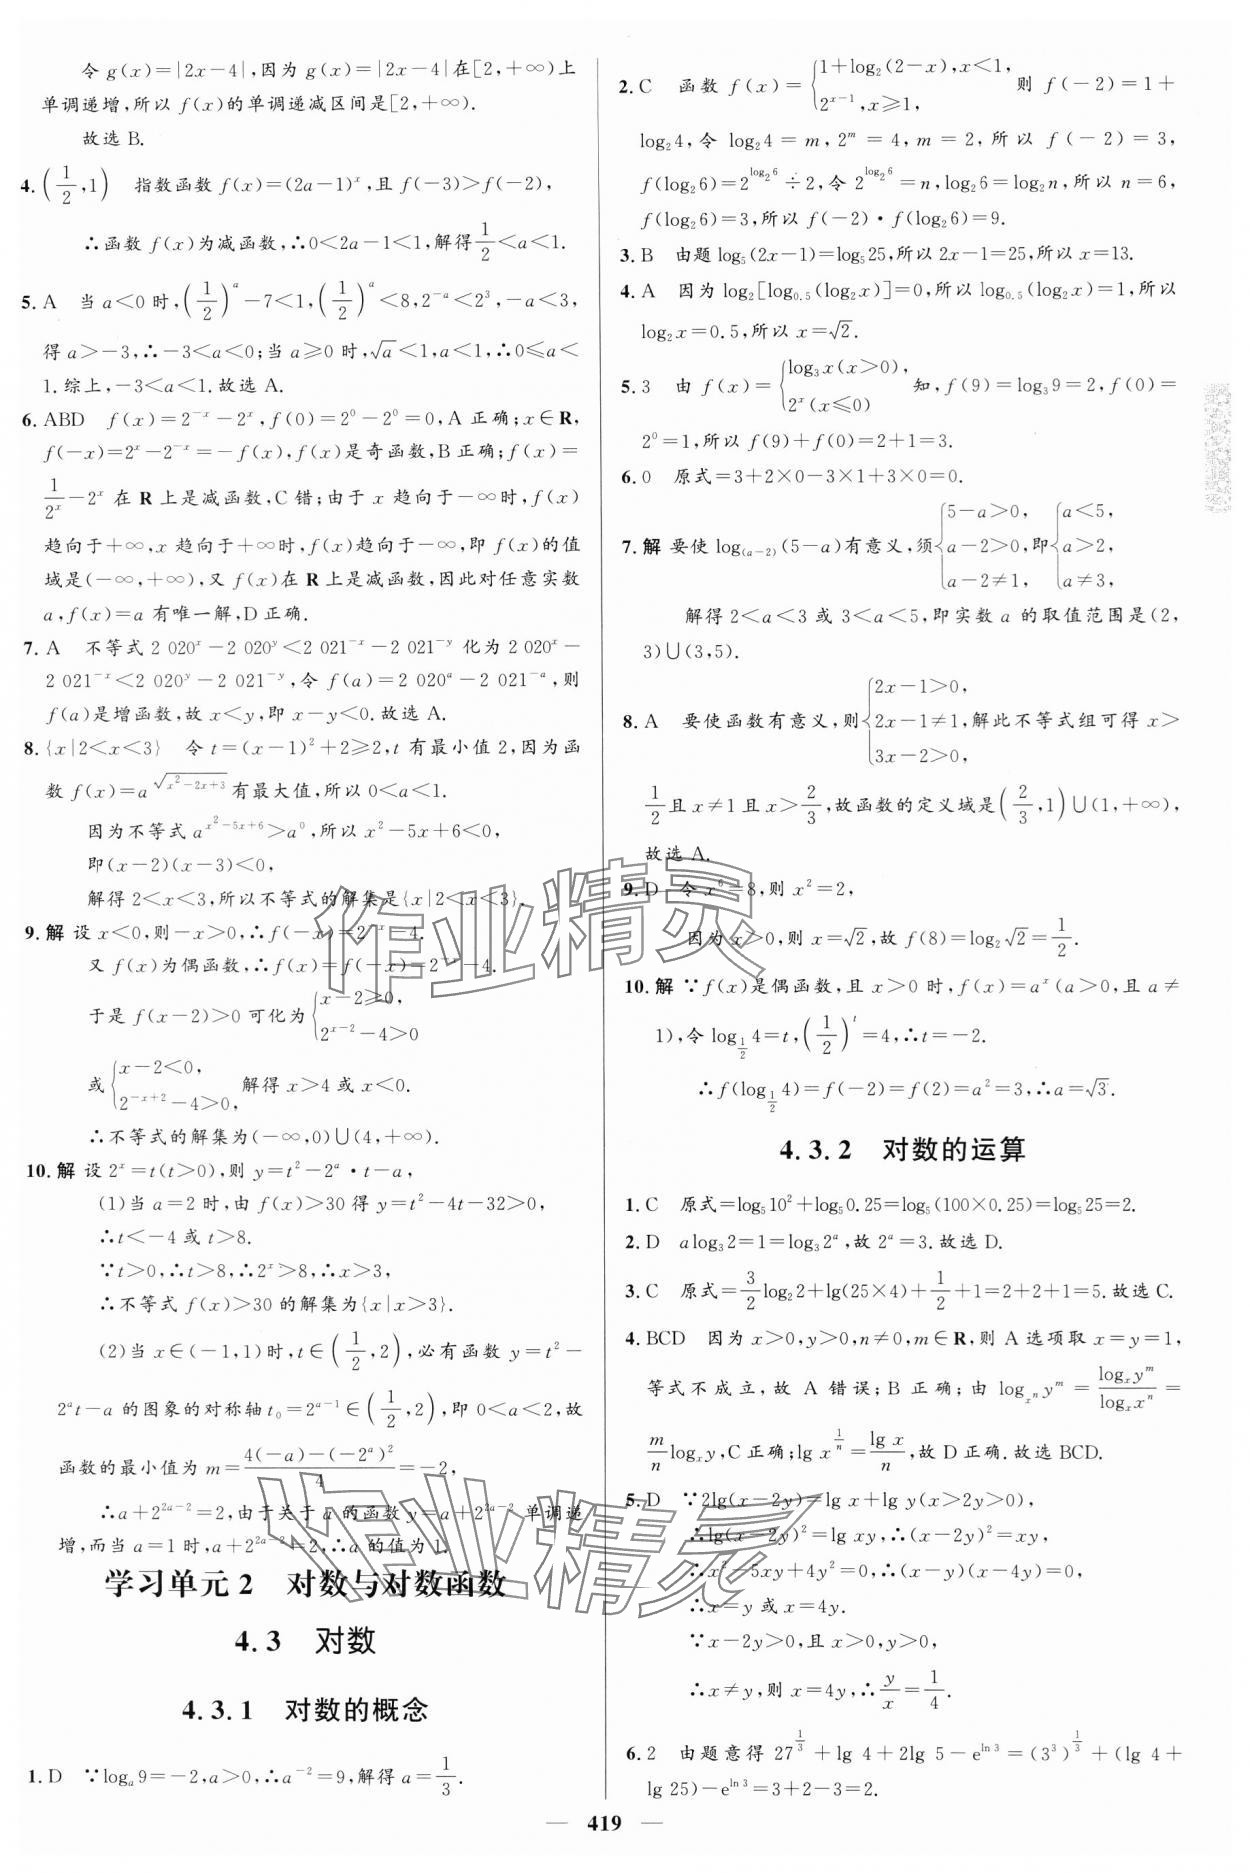 令 g(x)=|2x-4|,因为 g(x)=|2x-4|在[2,+∞)上
单调递增,所以 f(x)的单调递减区间是[2,+∞).
故选 B.
4.(1/2,1)　指数函数 f(x)=(2a-1)^x,且 f(-3)>f(-2),
∴函数 f(x)为减函数,∴0<2a-1<1,解得1/2<a<1.
5.A　当 a<0 时,(1/2)^a-7<1,(1/2)^a<8,2^{-a}<2^3,-a<3,
得 a>-3,∴-3<a<0;当 a≥0 时,√a<1,a<1,∴0≤a<
1.综上,-3<a<1.故选 A.
6.ABD　f(x)=2^{-x}-2^x,f(0)=2^0-2^0=0,A 正确;x∈R,
f(-x)=2^x-2^{-x}=-f(x),f(x)是奇函数,B 正确;f(x)=
1/2^x-2^x 在 R 上是减函数,C 错;由于 x 趋向于-∞时,f(x)
趋向于+∞,x 趋向于+∞时,f(x)趋向于-∞,即 f(x)的值
域是(-∞,+∞),又 f(x)在 R 上是减函数,因此对任意实数
a,f(x)=a 有唯一解,D 正确.
7.A　不等式 2 020^x-2 020^y<2 021^{-x}-2 021^{-y} 化为 2 020^x-
2 021^{-x}<2 020^y-2 021^{-y},令 f(a)=2 020^a-2 021^{-a},则
f(a)是增函数,故 x<y,即 x-y<0.故选 A.
8.{x|2<x<3}　令 t=(x-1)^2+2≥2,t 有最小值 2,因为函
数 f(x)=a^{√(x^2-2x+3)}有最大值,所以 0<a<1.
因为不等式 a^{x^2-5x+6}>a^0,所以 x^2-5x+6<0,
即(x-2)(x-3)<0,
解得 2<x<3,所以不等式的解集是{x|2<x<3}.
9.解 设 x<0,则-x>0,∴f(-x)=2^{-x}-4.
又 f(x)为偶函数,∴f(x)=f(-x)=2^{-x}-4.
于是 f(x-2)>0 可化为{x-2≥0, 2^{x-2}-4>0
或{x-2<0, 2^{-x+2}-4>0, 解得 x>4 或 x<0.
∴不等式的解集为(-∞,0)∪(4,+∞).
10.解 设 2^x=t(t>0),则 y=t^2-2^a·t-a,
(1)当 a=2 时,由 f(x)>30 得 y=t^2-4t-32>0,
∴t<-4 或 t>8.
∵t>0,∴t>8,∴2^x>8,∴x>3,
∴不等式 f(x)>30 的解集为{x|x>3}.
(2)当 x∈(-1,1)时,t∈(1/2,2),必有函数 y=t^2-
2^a t-a 的图象的对称轴 t_0=2^{a-1}∈(1/2,2),即 0<a<2,故
函数的最小值为 m=(4(-a)-(-2^a)^2)/4=-2,
∴a+2^{2a-2}=2,由于关于 a 的函数 y=a+2^{2a-2} 单调递
增,而当 a=1 时,a+2^{2a-2}=2,∴a 的值为 1.
学习单元 2　对数与对数函数
4.3　对数
4.3.1　对数的概念
1.D　∵log_a 9=-2,a>0,∴a^{-2}=9,解得 a=1/3.
2.C　函数 f(x)={1+log_2(2-x),x<1, 2^{x-1},x≥1, 则 f(-2)=1+
log_2 4,令 log_2 4=m,2^m=4,m=2,所以 f(-2)=3,
f(log_2 6)=2^{log_2 6}÷2,令 2^{log_2 6}=n,log_2 6=log_2 n,所以 n=6,
f(log_2 6)=3,所以 f(-2)·f(log_2 6)=9.
3.B　由题 log_5(2x-1)=log_5 25,所以 2x-1=25,所以 x=13.
4.A　因为 log_2[log_{0.5}(log_2 x)]=0,所以 log_{0.5}(log_2 x)=1,所以
log_2 x=0.5,所以 x=√2.
5.3　由 f(x)={log_3 x(x>0), 2^x(x≤0) 知,f(9)=log_3 9=2,f(0)=
2^0=1,所以 f(9)+f(0)=2+1=3.
6.0　原式=3+2×0-3×1+3×0=0.
7.解 要使 log_{(a-2)}(5-a)有意义,须{5-a>0, a-2>0, a-2≠1, 即{a<5, a>2, a≠3,
解得 2<a<3 或 3<a<5,即实数 a 的取值范围是(2,
3)∪(3,5).
8.A　要使函数有意义,则{2x-1>0, 2x-1≠1, 3x-2>0, 解此不等式组可得 x>
1/2且 x≠1 且 x>2/3,故函数的定义域是(2/3,1)∪(1,+∞),
故选 A.
9.D　令 x^6=8,则 x^2=2,
因为 x>0,则 x=√2,故 f(8)=log_2 √2=1/2.
10.解 ∵f(x)是偶函数,且 x>0 时,f(x)=a^x(a>0,且 a≠
1),令 log_{1/2}4=t,(1/2)^t=4,∴t=-2.
∴f(log_{1/2}4)=f(-2)=f(2)=a^2=3,∴a=√3.
4.3.2　对数的运算
1.C　原式=log_5 10^2+log_5 0.25=log_5(100×0.25)=log_5 25=2.
2.D　alog_3 2=1=log_3 2^a,故 2^a=3.故选 D.
3.C　原式=3/2 log_2 2+lg(25×4)+1/2+1=2+2+1=5.故选 C.
4.BCD　因为 x>0,y>0,n≠0,m∈R,则 A 选项取 x=y=1,
等式不成立,故 A 错误;B 正确;由 log_{x^n} y^m=log_x y^m/log_x x^n=
m/n log_x y,C 正确;lg x^{1/n}=lg x/n,故 D 正确.故选 BCD.
5.D　∵2lg(x-2y)=lg x+lg y(x>2y>0),
∴lg(x-2y)^2=lg xy,∴(x-2y)^2=xy,
∴x^2-5xy+4y^2=0,∴(x-y)(x-4y)=0,
∴x=y 或 x=4y.
∵x-2y>0,且 x>0,y>0,
∴x≠y,则 x=4y,∴y/x=1/4.
6.2　由题意得 27^{1/3}+lg 4+2lg 5-e^{ln 3}=(3^3)^{1/3}+(lg 4+
lg 25)-e^{ln 3}=3+2-3=2.
— 419 —
作业精灵
作业精灵